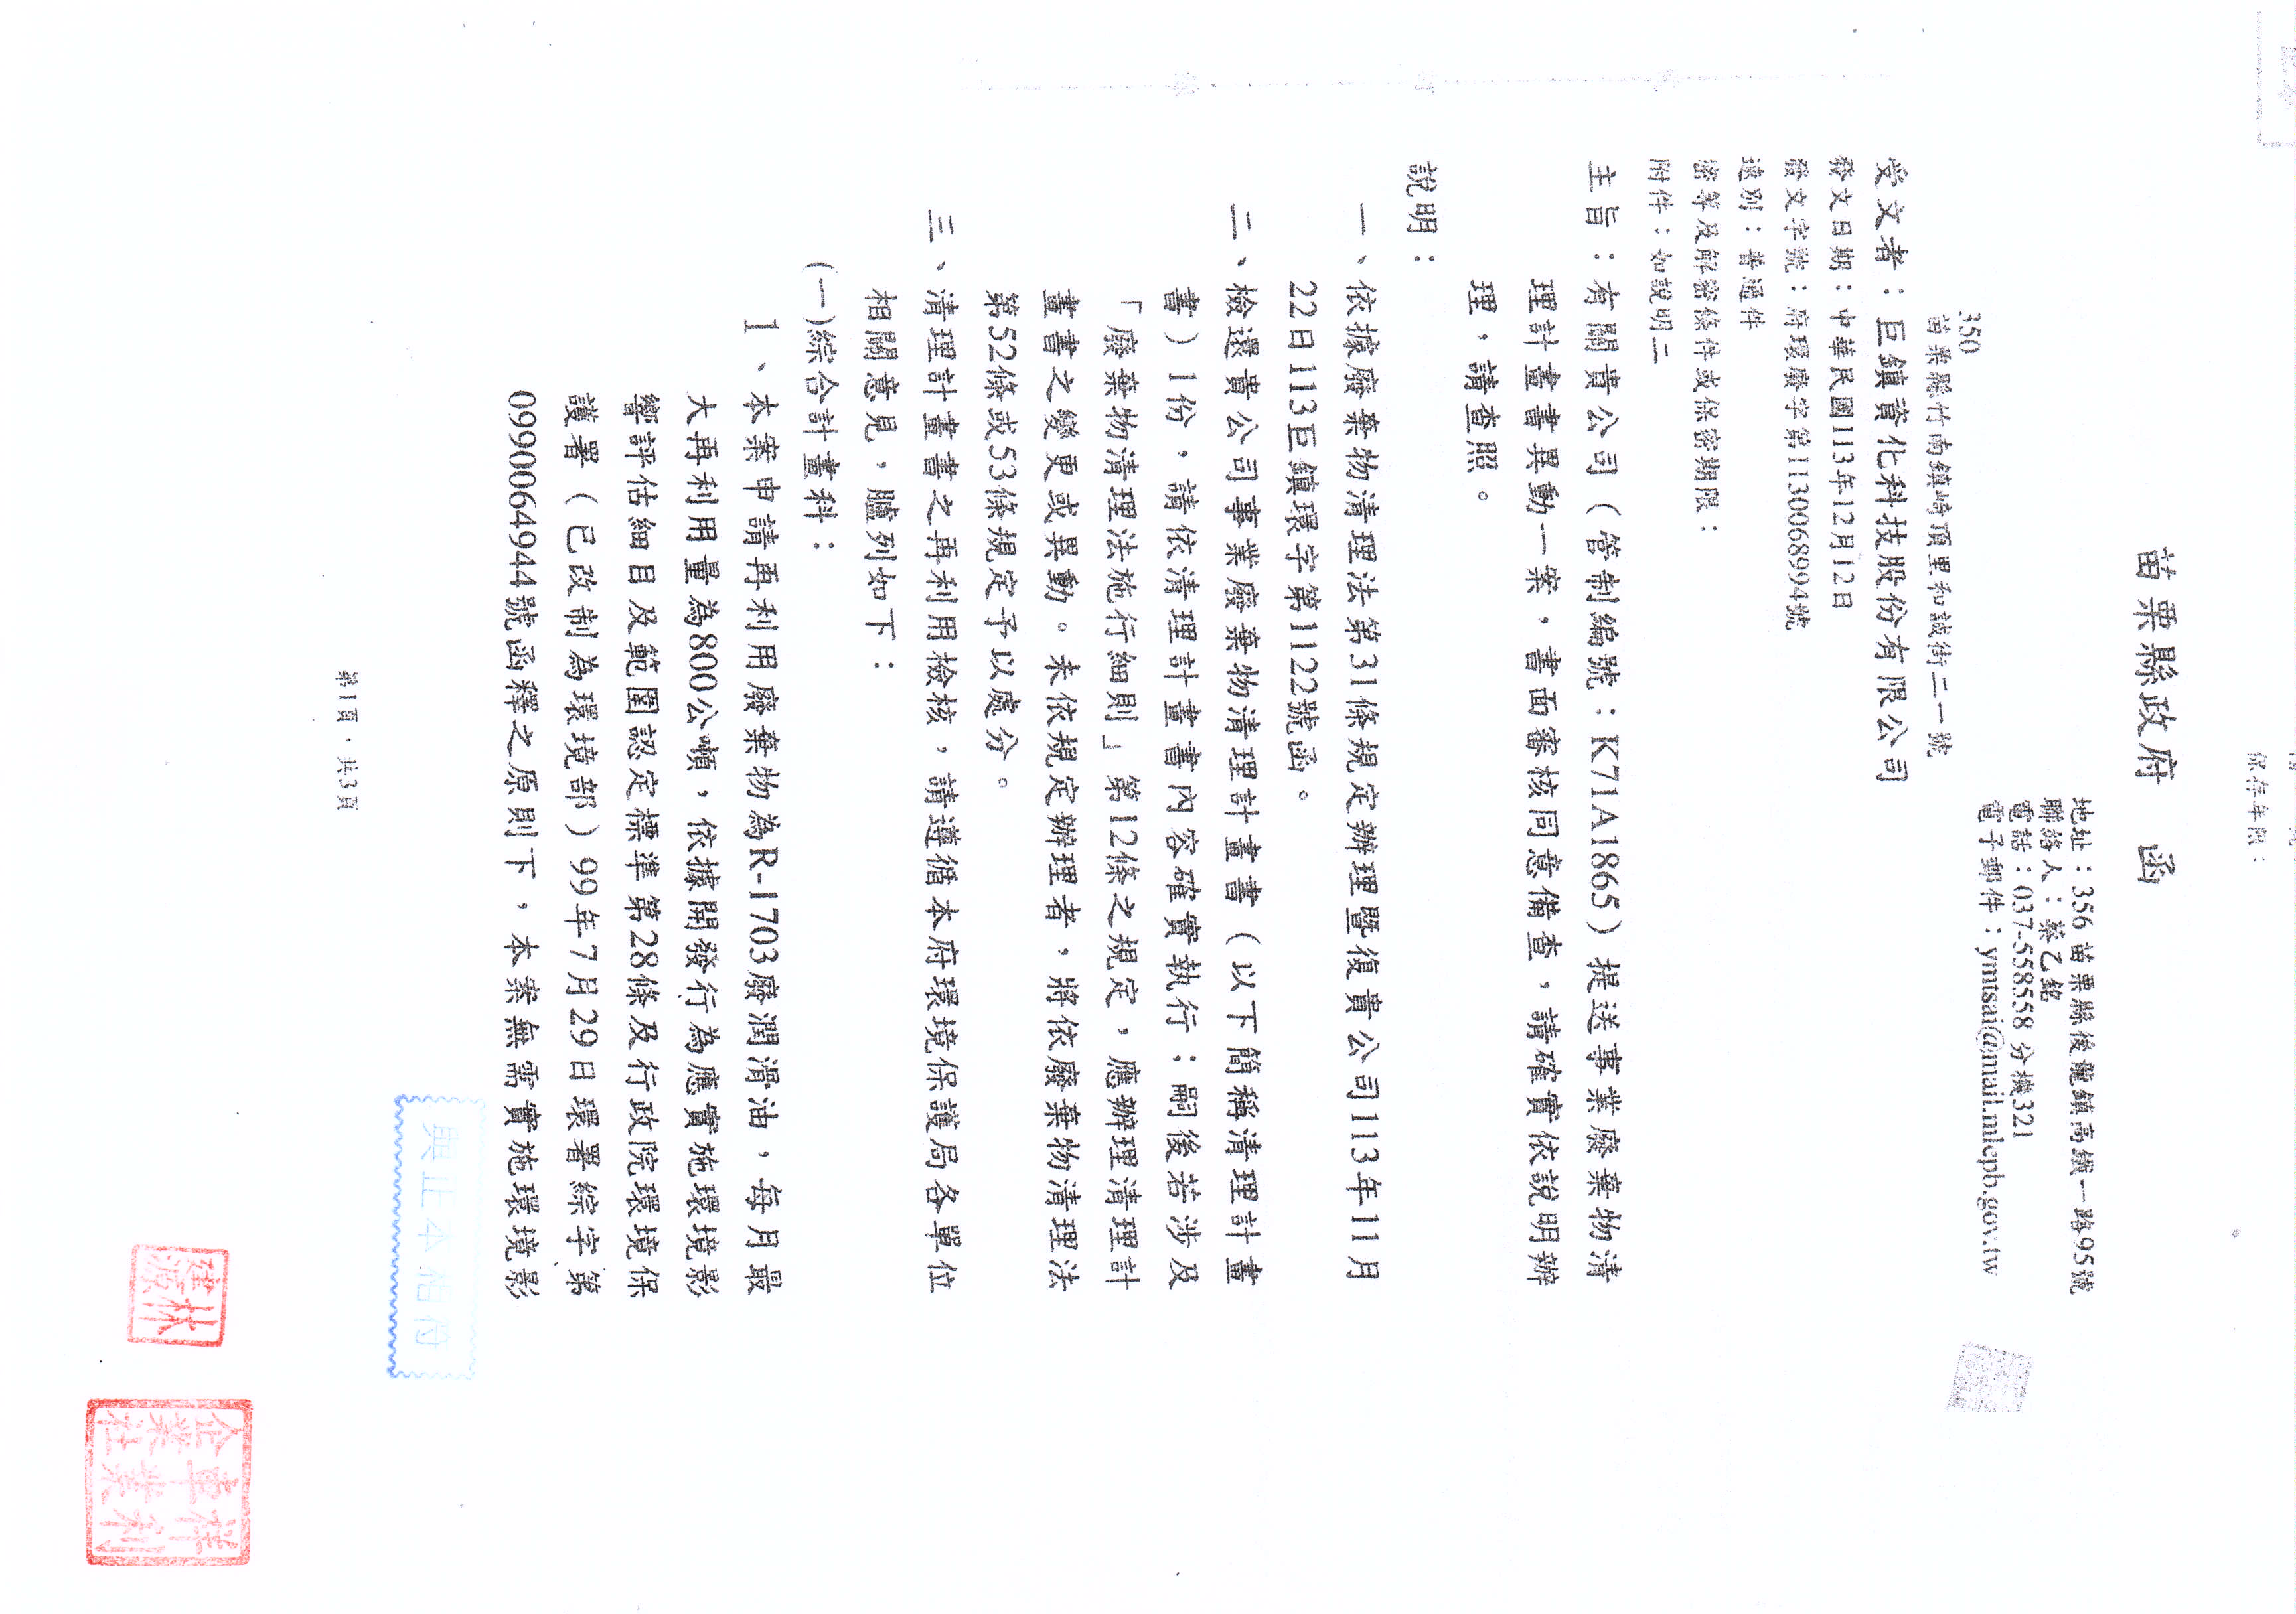 保存年限：
苗栗縣政府 函
地址：356苗栗縣後龍鎮高鐵一路95號
聯絡人：蔡乙銘
電話：037-558558分機321
電子郵件：ymtsai@mail.mlepb.gov.tw
350
苗栗縣竹南鎮崎頂里和誠街二一號
受文者：巨鎮資化科技股份有限公司
發文日期：中華民國113年12月12日
發文字號：府環廢字第1130068994號
速別：普通件
密等及解密條件或保密期限：
附件：如說明二
主旨：有關貴公司（管制編號：K71A1865）提送事業廢棄物清
理計畫書異動一案，書面審核同意備查，請確實依說明辦
理，請查照。
說明：
一、依據廢棄物清理法第31條規定辦理暨復貴公司113年11月
22日113巨鎮環字第1122號函。
二、檢還貴公司事業廢棄物清理計畫書（以下簡稱清理計畫
書）1份，請依清理計畫書內容確實執行；嗣後若涉及
「廢棄物清理法施行細則」第12條之規定，應辦理清理計
畫書之變更或異動。未依規定辦理者，將依廢棄物清理法
第52條或53條規定予以處分。
三、清理計畫書之再利用檢核，請遵循本府環境保護局各單位
相關意見，臚列如下：
(一)綜合計畫科：
1、本案申請再利用廢棄物為R-1703廢潤滑油，每月最
大再利用量為800公噸，依據開發行為應實施環境影
響評估細目及範圍認定標準第28條及行政院環境保
護署（已改制為環境部）99年7月29日環署綜字第
0990064944號函釋之原則下，本案無需實施環境影
與正本相符
第1頁，共3頁